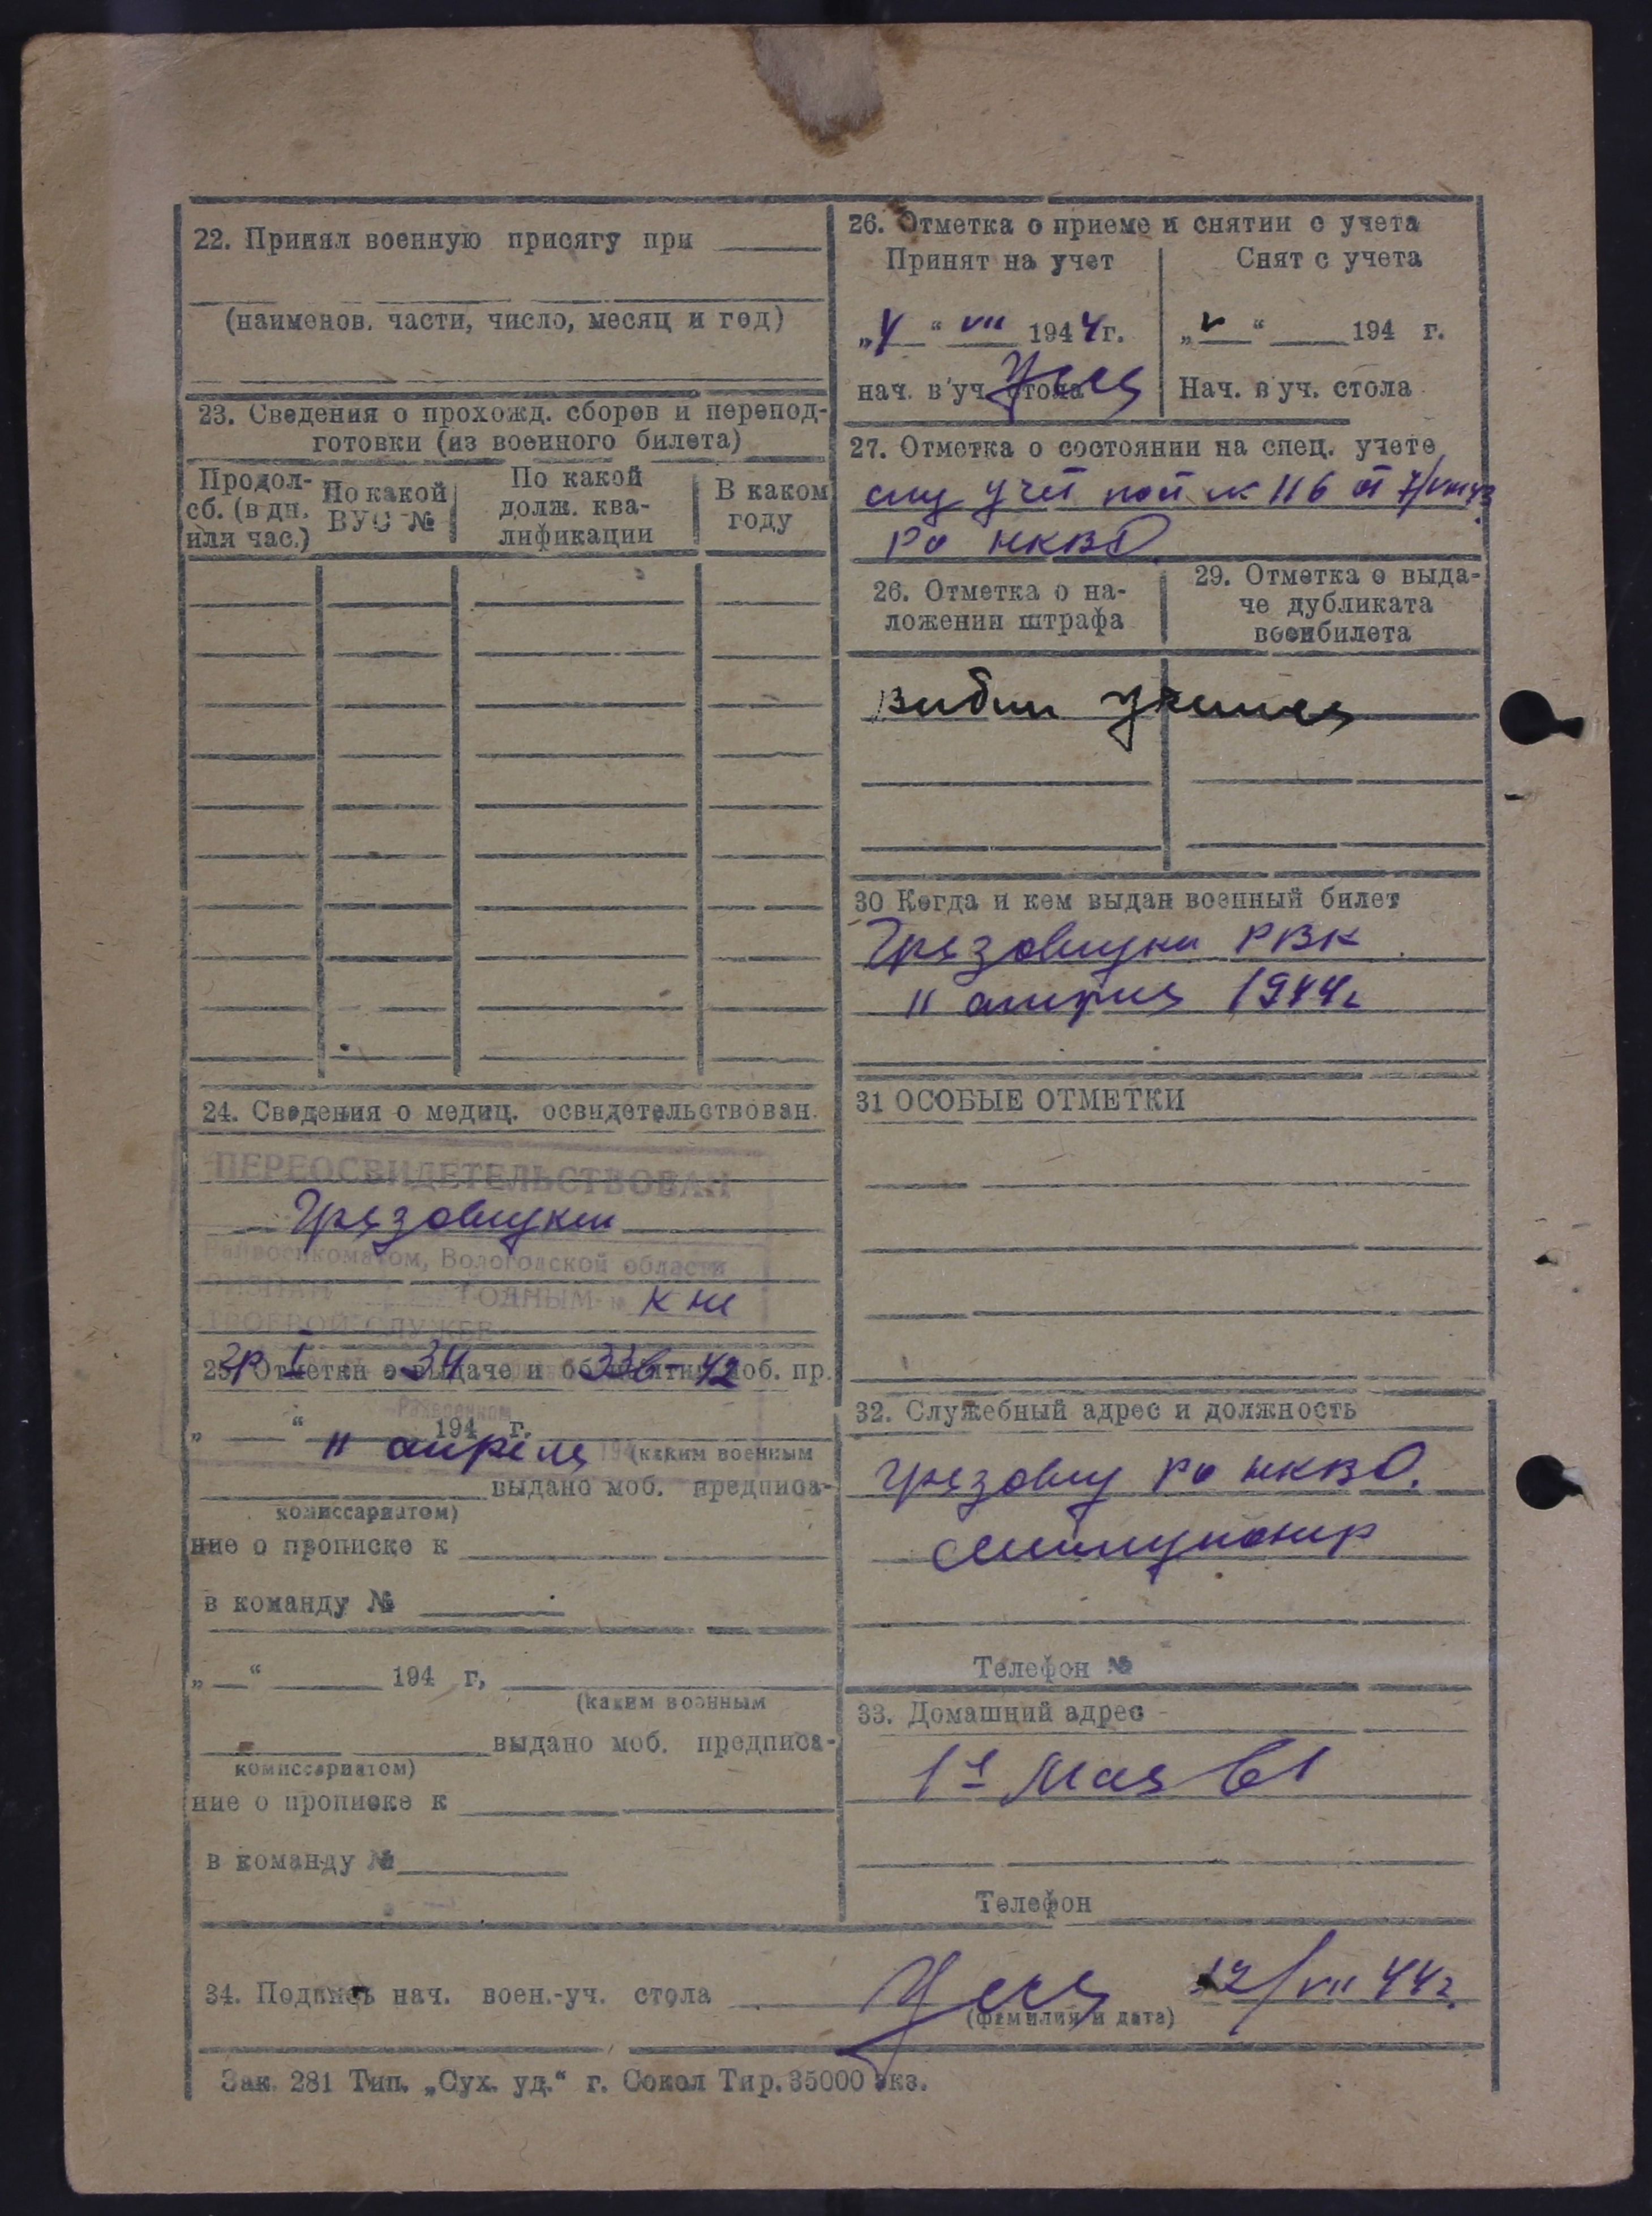 22. Принял военную присягу при
(наименов. части, число, месяц и год)
23. Сведения о прохожд. сборов и перепод-
готовки (из военного билета)
Продол-
сб. (в дн.
или час.)
По какой
ВУС №
По какой
долж. ква-
лификации
В каком
году
24. Сведения о медиц. освидетельствован.
ПЕРЕОСВИДЕТЕЛЬСТВОВАН
Грязовецким
Райвоенкоматом, Вологодской области
ГОДНЫМ к не
СТРОЕВОЙ СЛУЖБЕ
гр I 34 336-42
25. Отметки о выдаче и об моб. пр.
„ “ 194 г.
11 апреля
(каким военным
выдано моб. предписа-
комиссариатом)
ние о прописке к
в команду №
„ “ 194 г,
(каким военным
выдано моб. предписа-
комиссариатом)
ние о прописке к
в команду №
26. Отметка о приеме и снятии с учета
Принят на учет
„ “ VII 1944г.
нач. в уч. стола
Снят с учета
„ “ 194 г.
Нач. в уч. стола
27. Отметка о состоянии на спец. учете
учет № 116 от 7/VIII 43
РО НКВД
26. Отметка о на-
ложении штрафа
29. Отметка о выда-
че дубликата
военбилета
30 Когда и кем выдан военный билет
Грязовецким РВК
11 апреля 1944г
31 ОСОБЫЕ ОТМЕТКИ
32. Служебный адрес и должность
Грязовец РО НКВД.
милиционер
Телефон №
33. Домашний адрес
1е Мая 61
Телефон
34. Подпись нач. воен.-уч. стола
12/VII 44г.
(фамилия и дата)
Зак. 281 Тип. „Сух. уд.“ г. Сокол Тир. 35000 экз.